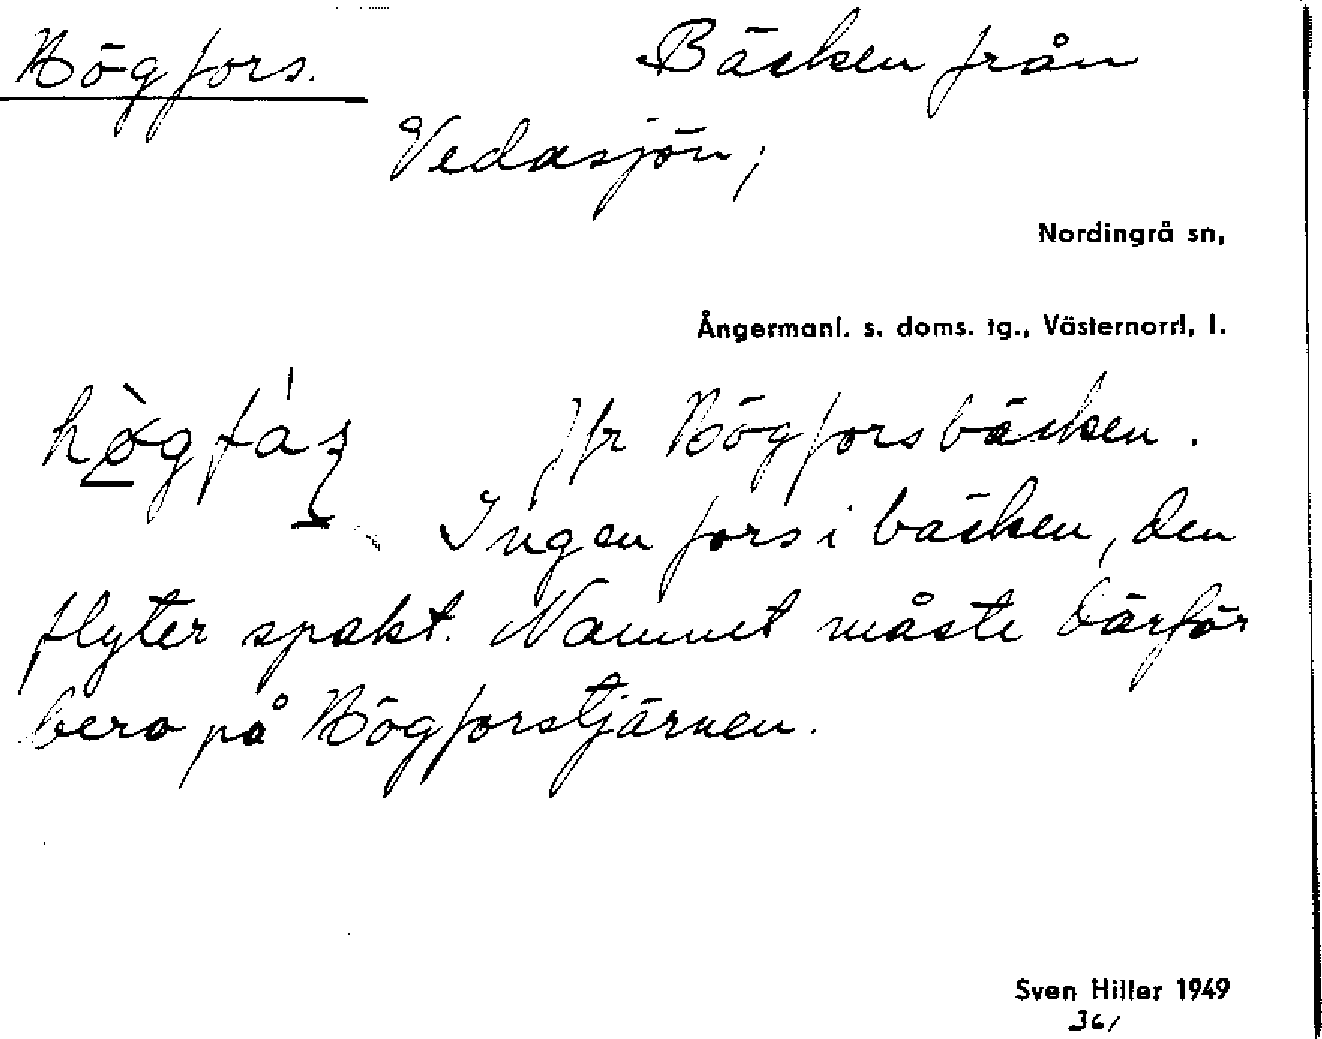 Högfors. Bäcken från
Vedasjön;
Nordingrå sn,
Ångermanl. s. doms. tg., Västernorrl, l.
Jfr Högforsbäcken.
Ingen fors i bäcken, den
flyter spakt. Namnet måste därför
bero på Högforstjärnen.
Sven Hiller 1949